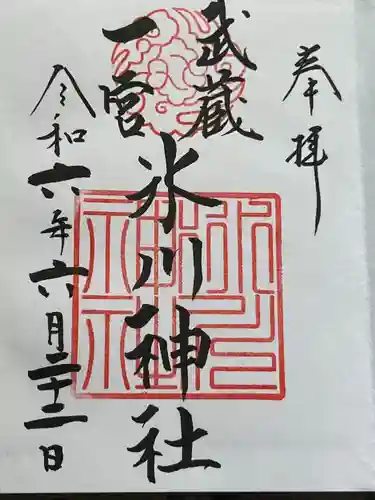 奉拝
武蔵
一宮
氷川神社
令和六年六月二十二日
氷川
神社